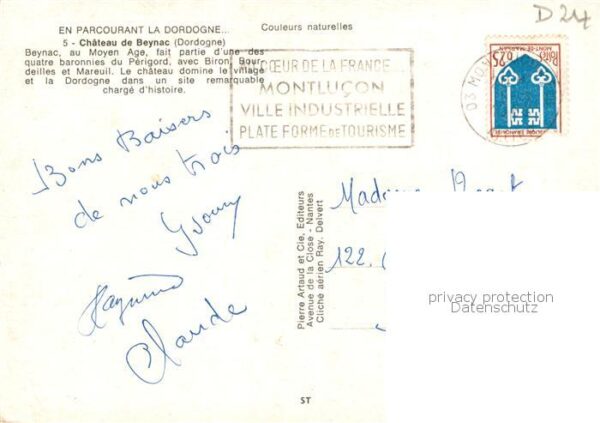 D24
EN PARCOURANT LA DORDOGNE...
Couleurs naturelles
5 - Château de Beynac (Dordogne)
Beynac, au Moyen Age, fait partie d'une des
quatre baronnies du Périgord, avec Biron, Bour-
deilles et Mareuil. Le château domine le village
et la Dordogne dans un site remarquable
chargé d'histoire.
CŒUR DE LA FRANCE...
MONTLUÇON
VILLE INDUSTRIELLE
PLATE FORME DE TOURISME
03
0,25
MONT-DE-MARSAN
Bons Baisers
de nous trois
Yvonny
Raymond
Claude
Pierre Artaud et Cie, Editeurs
Avenue de la Close - Nantes
Cliché aérien Ray. Delvert
Madame
122.
privacy protection
Datenschutz
ST